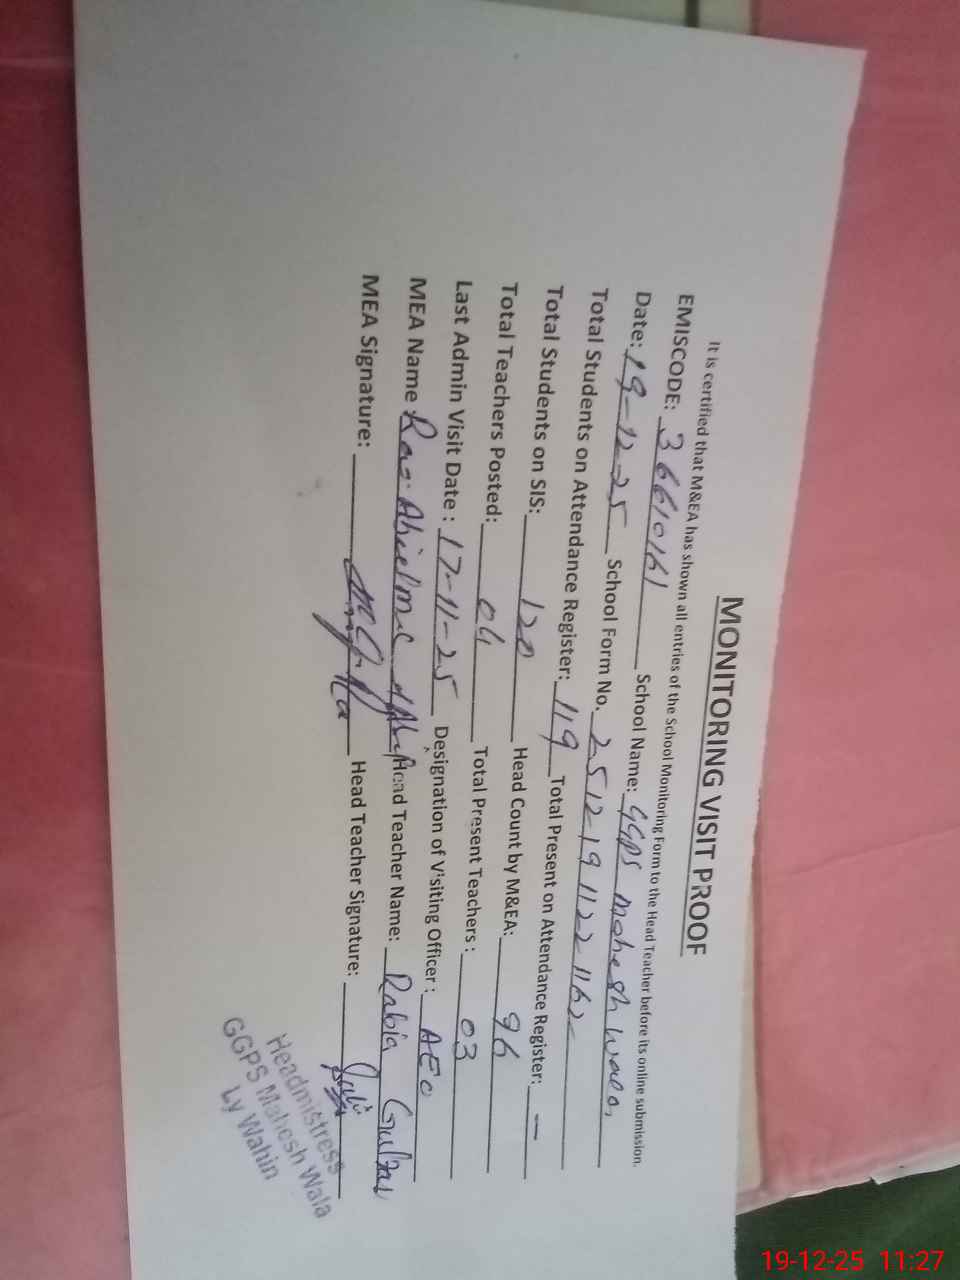 MONITORING VISIT PROOF
It is certified that M&EA has shown all entries of the School Monitoring Form to the Head Teacher before its online submission.
EMISCODE: 36610161 School Name: GGPS Mahesh Wala
Date: 19-12-25 School Form No. 2512-19 1122 1162
Total Students on Attendance Register: 119 Total Present on Attendance Register: —
Total Students on SIS: 120 Head Count by M&EA: 96
Total Teachers Posted: 04 Total Present Teachers: 03
Last Admin Visit Date: 17-11-25 Designation of Visiting Officer: AEO
MEA Name Head Teacher Name: Rabia Gulzar
MEA Signature: Head Teacher Signature:
Headmistress
GGPS Mahesh Wala
Ly Wahin
19-12-25 11:27